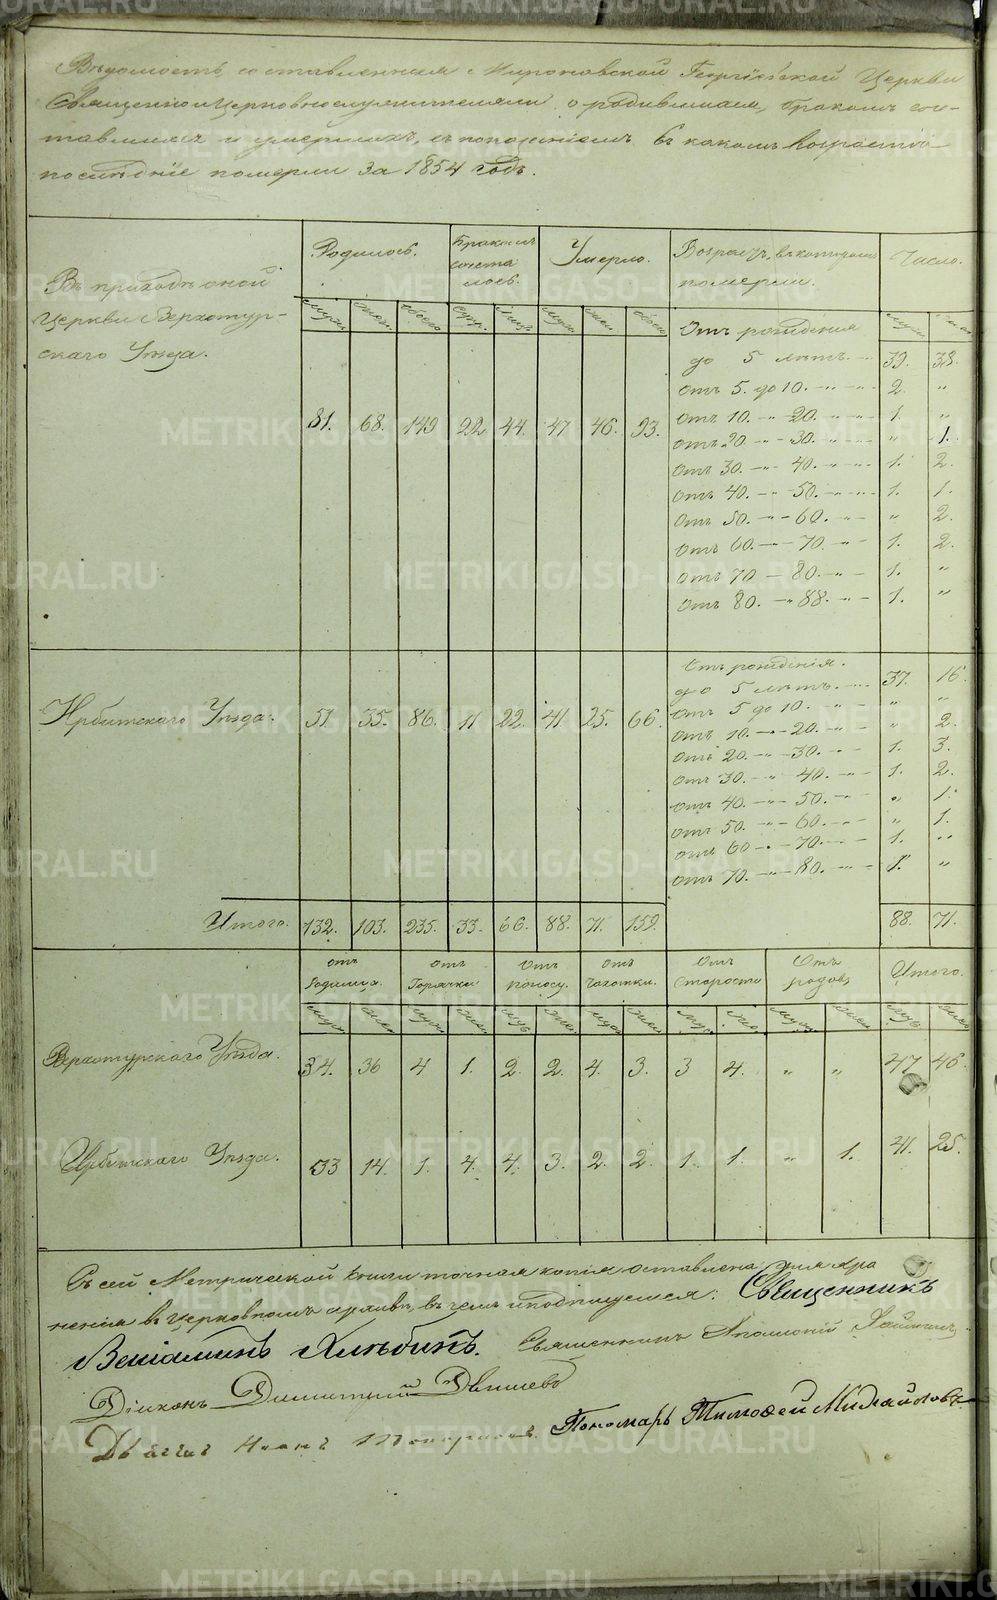 Вѣдомость, составленная Мироновской Георгіевской Церкви
Священноцерковнослужителями, о родившихся, бракомъ соче-
тавшихся и умершихъ, съ показаніемъ въ какомъ возрастѣ
послѣдніе померли за 1854 годъ.
Родилось. Бракомъ сочета лось. Умерло. Возрастъ, въ которомъ померли. Число.
Въ приходѣ оной
Церкви Верхотур-
скаго Уѣзда.
Муж. Жен. Обоего Супр. Лицъ Муж. Жен. Обоего Муж. Жен.
81. 68. 149 22 44. 47 46. 93.
Отъ рожденія
до 5 лѣтъ. 39. 38.
отъ 5. до 10. 2. "
отъ 10. " 20. 1. "
отъ 20. " 30. " 1.
отъ 30. " 40. 1. 2.
отъ 40. " 50. 1. 1.
отъ 50. " 60. " 2.
отъ 60. " 70. 1. 2.
отъ 70 80. 1. "
отъ 80. " 88. 1. "
Ирбитскаго Уѣзда. 51 35. 86. 11 22. 41 25. 66.
Отъ рожденія.
до 5 лѣтъ. 37. 16.
отъ 5 до 10. " "
отъ 10. 20. " 2.
отъ 20. " 30. 1. 3.
отъ 30. " 40. 1. 2.
отъ 40. " 50. " 1.
отъ 50. " 60. " 1.
отъ 60 70. 1. "
отъ 70. " 80. 1. "
Итого. 132. 103. 235. 33. 66. 88. 71. 159. 88. 71.
отъ Родимца. отъ Горячки отъ поносу. отъ Чахотки. отъ Старости отъ родовъ Итого.
Муж. Жен. Муж. Жен. Муж. Жен. Муж. Жен. Муж. Жен. Муж. Жен. Муж. Жен.
Верхотурскаго Уѣзда. 34. 36 4 1. 2. 2. 4. 3. 3 4. " " 47 46.
Ирбитскаго Уѣзда. 33 14. 1. 4. 4. 3. 2. 2. 1. 1. " 1. 41. 25.
Съ сей Метрической книги точная копія оставлена для хра
ненія въ церковномъ архивѣ, въ чемъ и подпишемся: Священникъ
Веніаминъ Хлѣбинъ. Священникъ
Діаконъ Димитрій
Дьячекъ Иванъ Пономарь Тимоѳей Михайловъ
METRIKI.GASO-URAL.RU